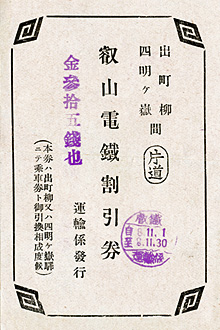 出町柳
四明ヶ嶽間
片道
叡山電鐵割引券
金參拾五錢也
運輸係發行
本券ハ出町柳又ハ四明ヶ嶽驛
ニテ乘車券ト御引換相成度候
叡鐵
自 8.11.1
至 8.11.30
運輸係